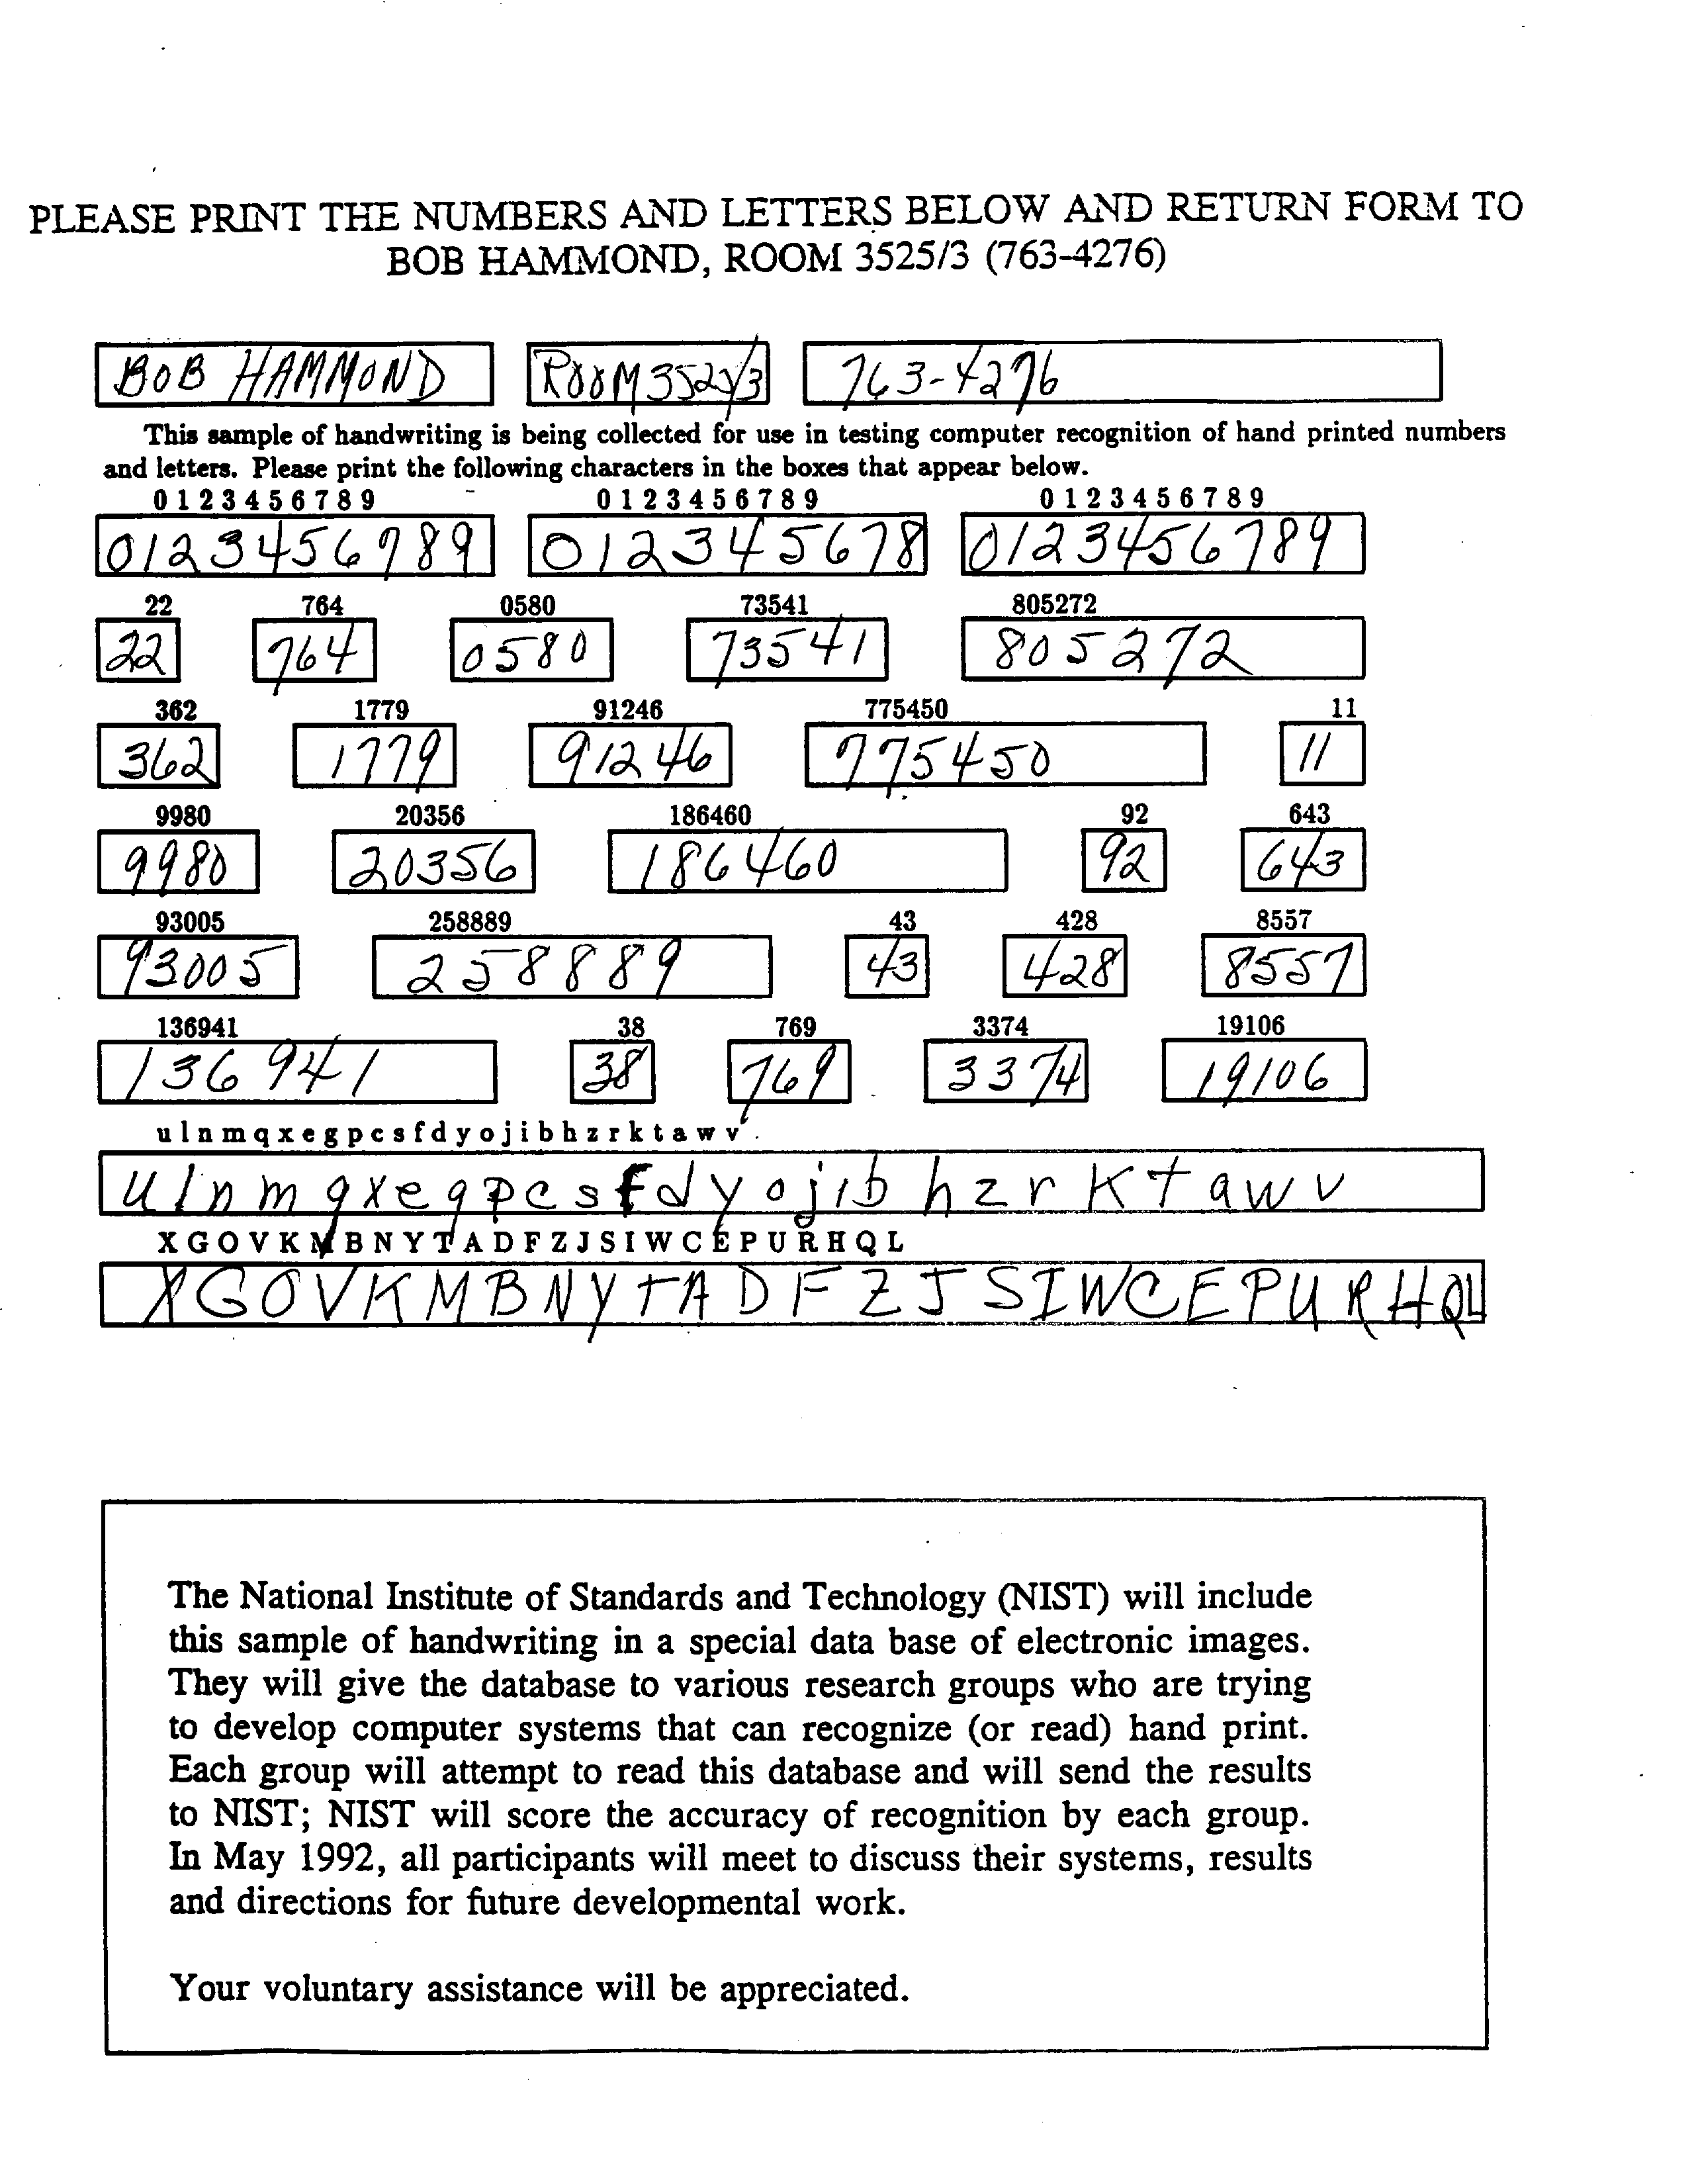 PLEASE PRINT THE NUMBERS AND LETTERS BELOW AND RETURN FORM TO
BOB HAMMOND, ROOM 3525/3 (763-4276)
BOB HAMMOND ROOM 3525/3 763-4276
This sample of handwriting is being collected for use in testing computer recognition of hand printed numbers
and letters. Please print the following characters in the boxes that appear below.
0 1 2 3 4 5 6 7 8 9 0 1 2 3 4 5 6 7 8 9 0 1 2 3 4 5 6 7 8 9
0123456789 012345678 0123456789
22 764 0580 73541 805272
22 764 0580 73541 805272
362 1779 91246 775450 11
362 1779 91246 775450 11
9980 20356 186460 92 643
9980 20356 186460 92 643
93005 258889 43 428 8557
93005 258889 43 428 8557
136941 38 769 3374 19106
136941 38 769 3374 19106
u l n m q x e g p c s f d y o j i b h z r k t a w v
u l n m q x e g p c s f d y o j i b h z r K t a w v
X G O V K M B N Y T A D F Z J S I W C E P U R H Q L
X G O V K M B N Y T A D F Z J S I W C E P U R H Q L
The National Institute of Standards and Technology (NIST) will include
this sample of handwriting in a special data base of electronic images.
They will give the database to various research groups who are trying
to develop computer systems that can recognize (or read) hand print.
Each group will attempt to read this database and will send the results
to NIST; NIST will score the accuracy of recognition by each group.
In May 1992, all participants will meet to discuss their systems, results
and directions for future developmental work.
Your voluntary assistance will be appreciated.